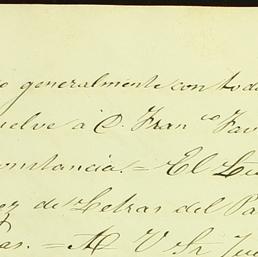 o generalmente con tod
uelve a C. Fran co Fav
constancia. = El Lu
ez de Letras del Pa
as. = A V Sr Jue